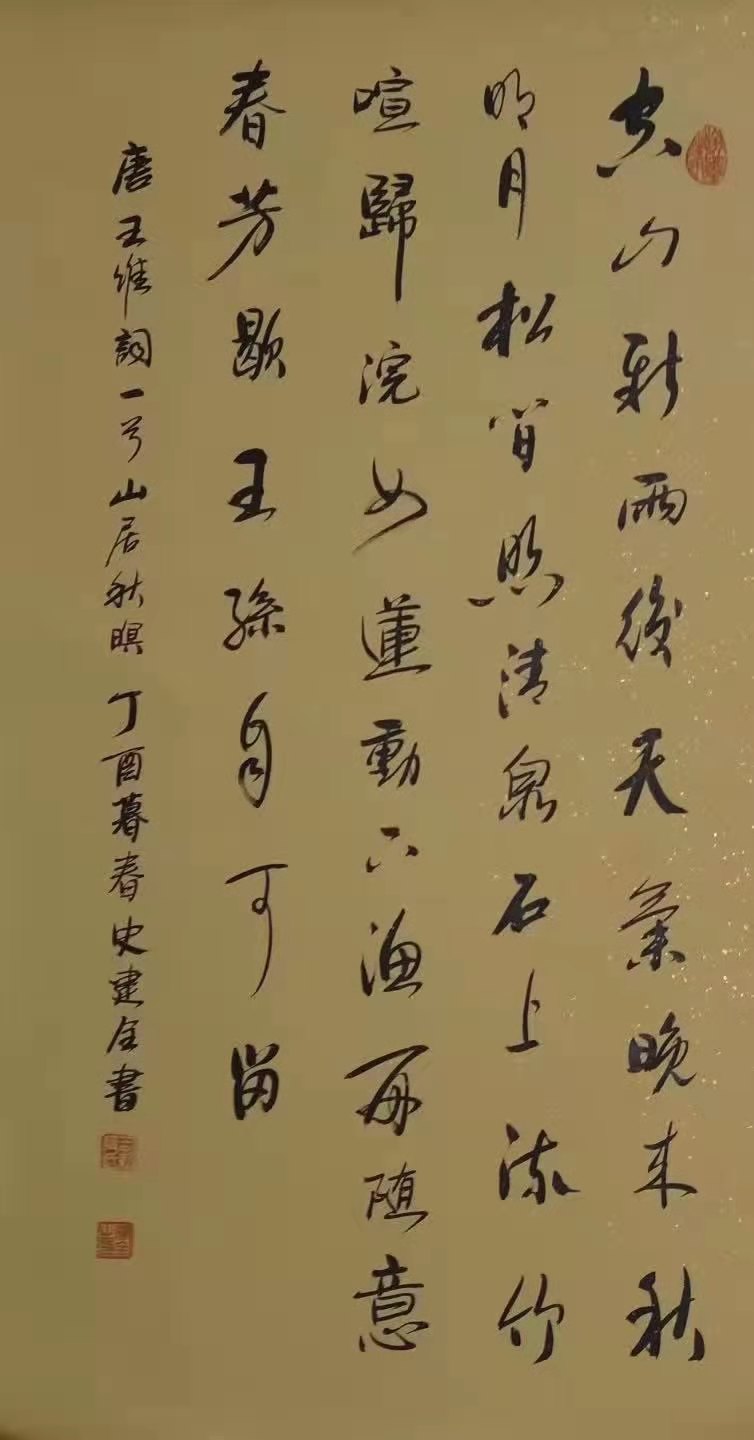 空山新雨後天氣晚来秋
明月松间照清泉石上流竹
喧歸浣女蓮動下漁舟随意
春芳歇王孫自可留
唐王維詞一首山居秋暝 丁酉暮春史建全書